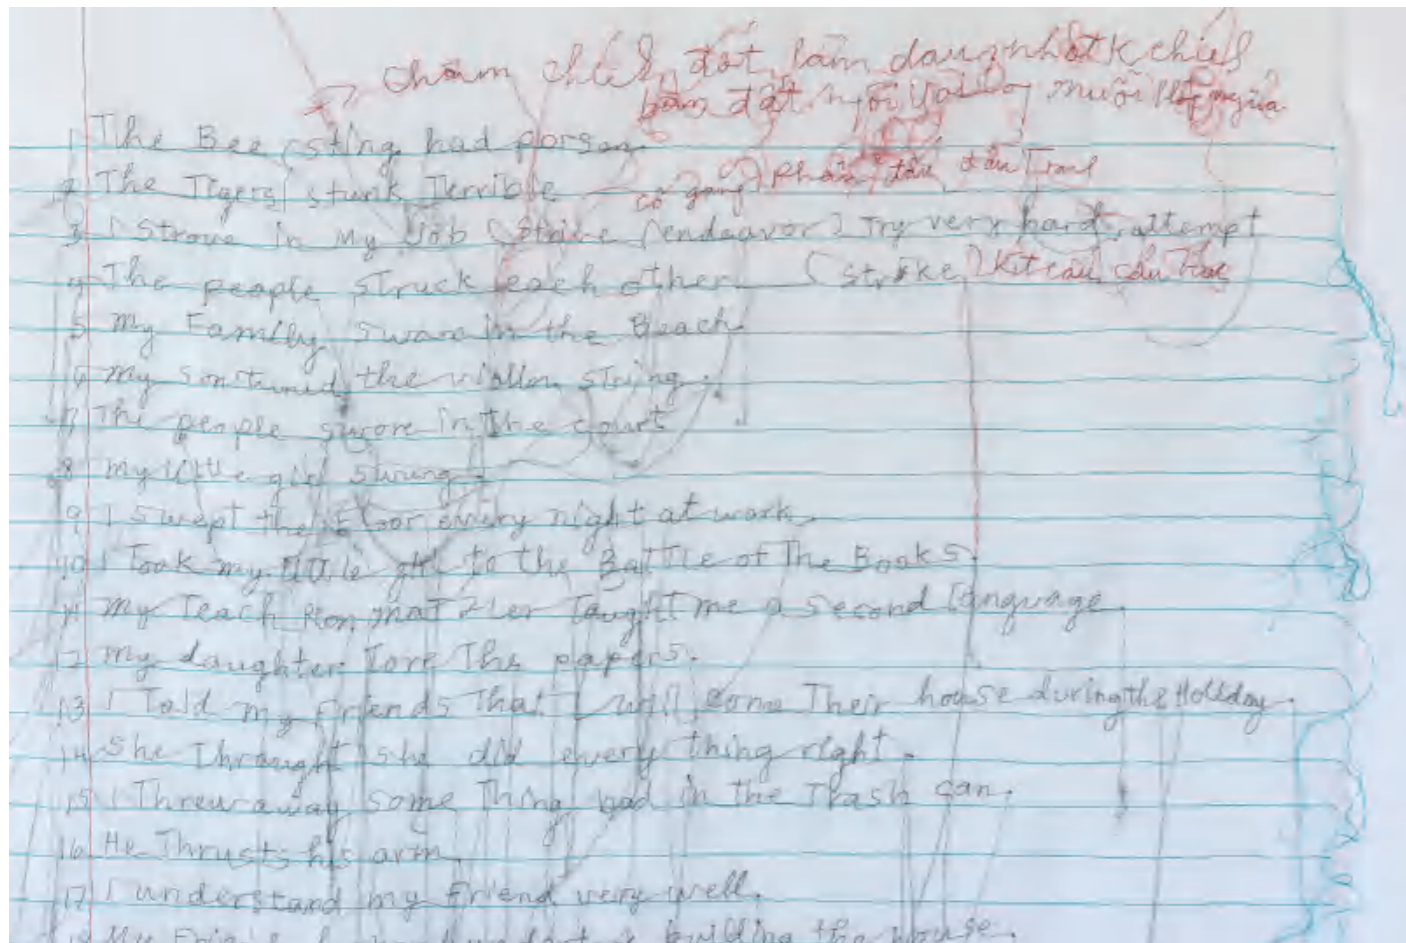 châm chích, đốt, làm đau nhót
muỗi
1 The Bee sting had porson.
cố gắng phấn đấu, đấu tranh
2 The Tigers stunk Terrible
3 I Strove in my Job (Strive (endeavor) Try very hard, attempt
4 The people struck each other (strike)
5 My Family swam in the Beach.
6 my son tuned the viollon string.
7 The people swore in the court
8 my little girl swung.
9 I swept the floor every night at work.
10 I Took my little girl to the Battle of The Books.
11 my Teach Ron taught me a second language.
12 my daughter Tore The papers.
13 I Told my friends That I will come Their house during the Holiday.
14 She Throught she did every thing right.
15 I Threw away some Thing bad in the Trash can.
16 He Thrusts his arm.
17 I understand my friend very well.
18 My building the house.